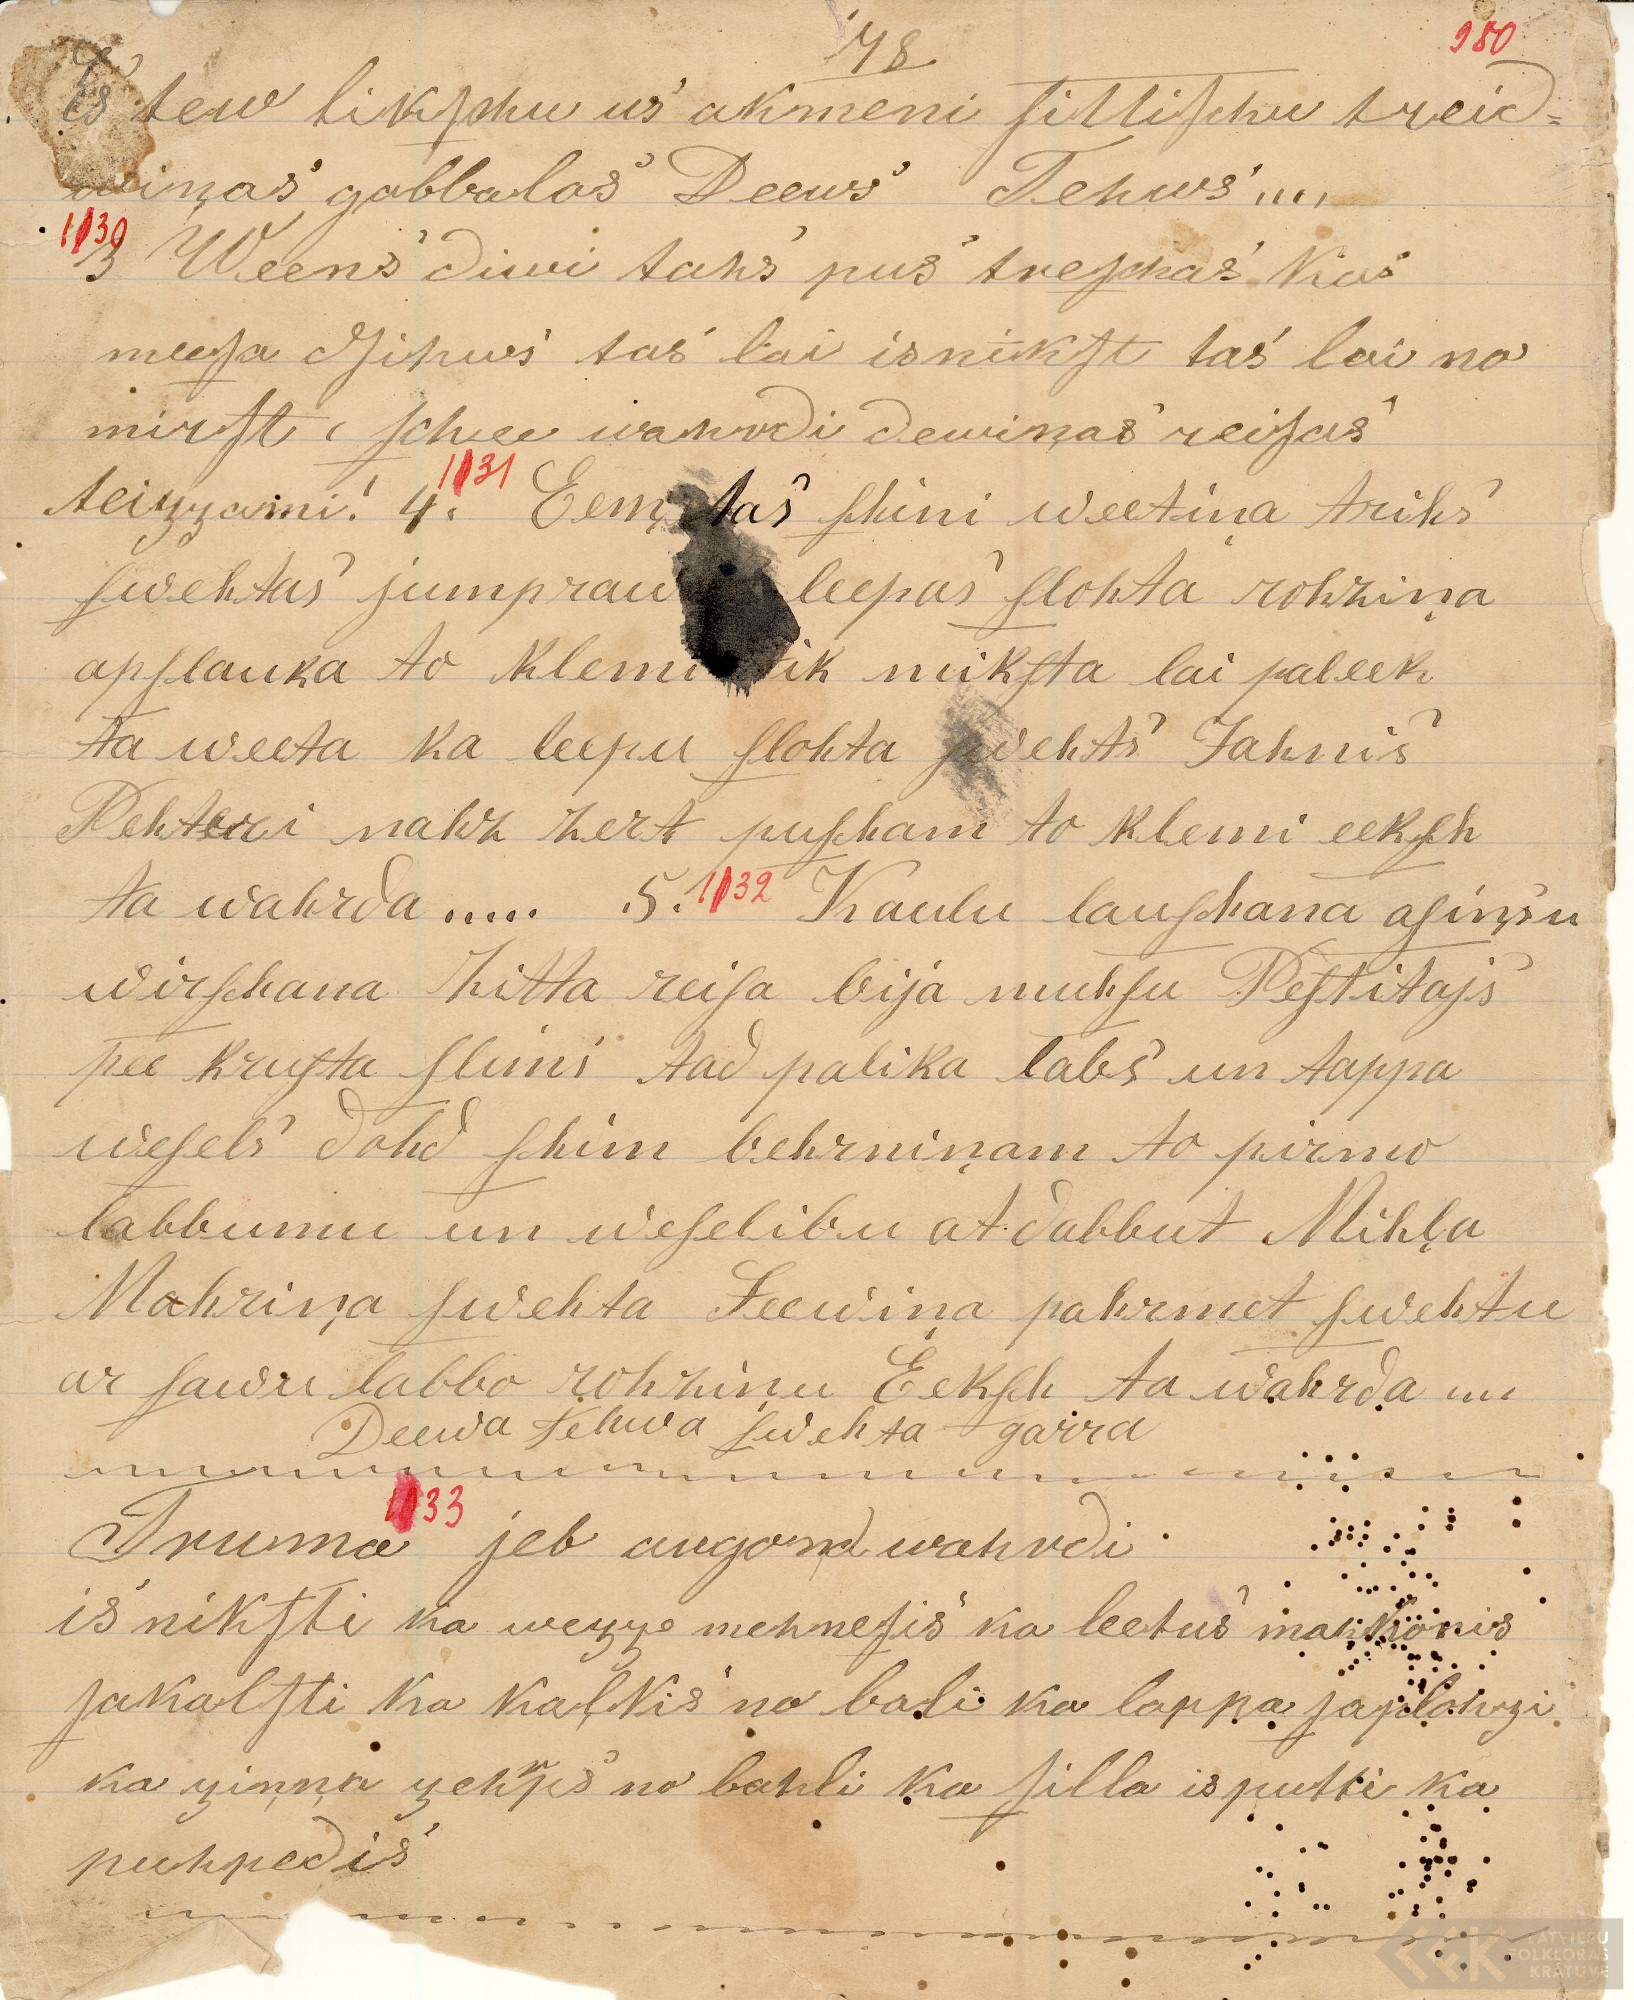 48
980
Es tew likschu us akmeni sittischu treid=
winas gabbalos Deews Tehws....
1130
3 Weens diwi tahs pus treschas Kas
meesa dsihws tas lai isnikst tas lai no
mirst, schee wahrdi dewiņas reisas
teizzami! 4. 1131 Eemņtas shini weetiņa trihs
swehtas jumpraw leepas slohta rohziņa
apslauka to klemi tik miksta lai paleek
ta weeta ka leepu slohta swehts Jahnis
Pehteri nahz zert pusham to klemi eeksh
ta wahrda ..... 5. 1132 Kaulu laushana asinṣu
wirshana zitta reisa bija muhsu Pestitajs
pee krusta slims tad palika labs un tappa
wesels dohd shim behrniņam to pirmo
labbumu un weselibu atdabbut Mihļa
Mahriņa swehta Seewiņa pahrmet swehtu
ar sawu labbo rohziņu Eeksh ta wahrda un
Deewa tehwa swehta garra
Truma 1133 jeb augona wahrdi
isniksti ka wezze mehnesis ka leetus mahkonis
sakalsti ka kaļķis no bali ka lappa saplahzi
ka ziņņa zehrps no bahli ka silla isputti ka
puhpedis
LATVIEŠU
FOLKLORAS
KRĀTUVE